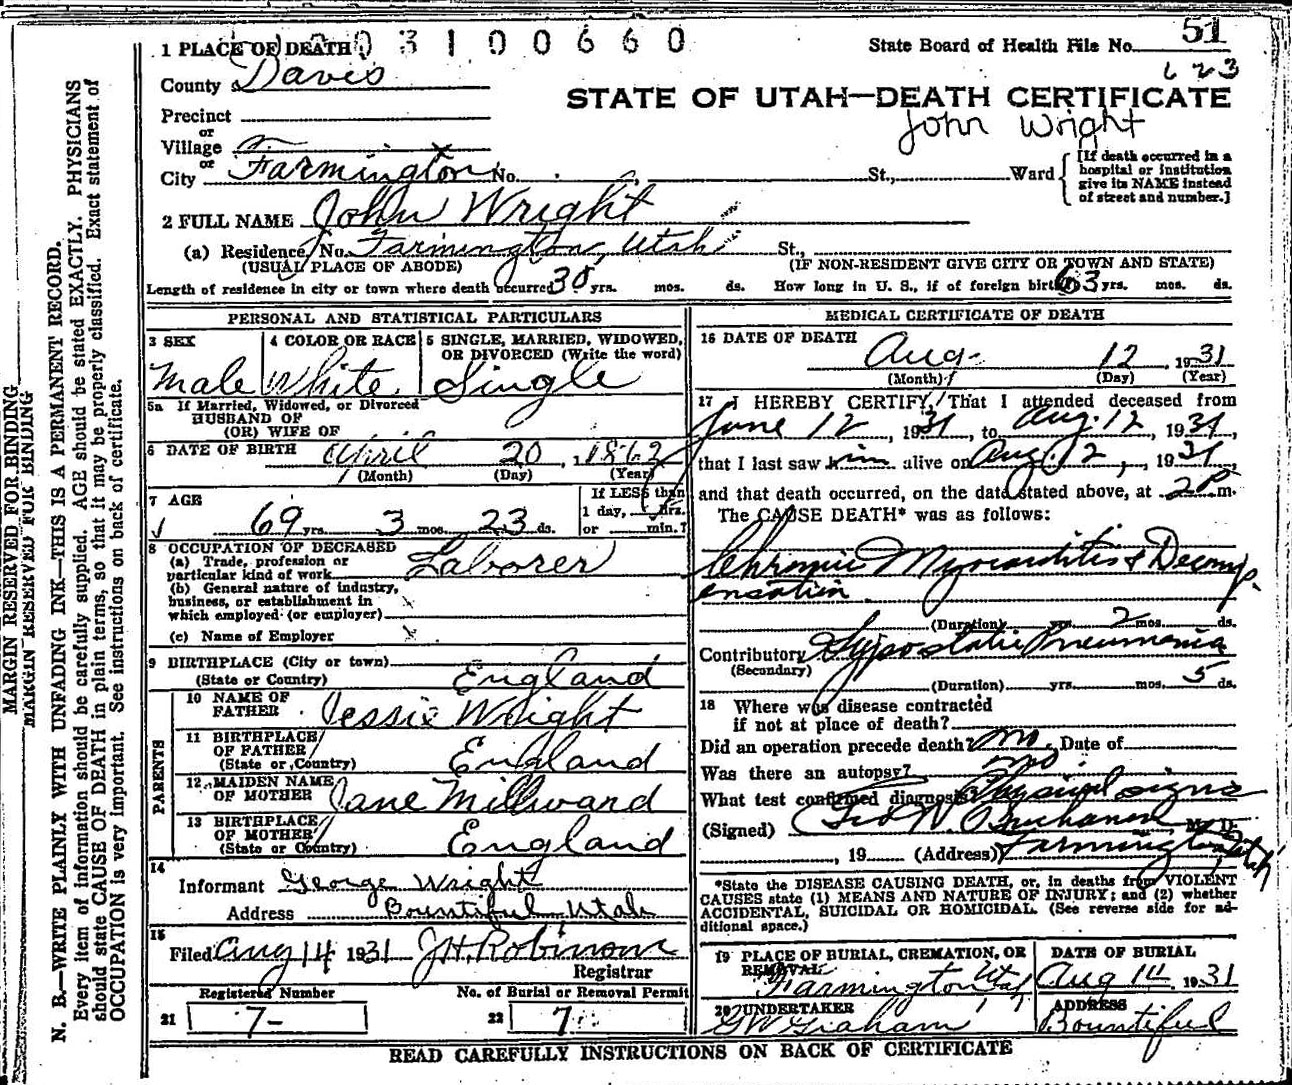 1 PLACE OF DEATH 0 3 1 0 0 6 6 0
State Board of Health File No. 51
623
County Davis
STATE OF UTAH—DEATH CERTIFICATE
John Wright
Precinct
or
Village
or
City Farmington No. St., Ward
[If death occurred in a
hospital or institution
give its NAME instead
of street and number.]
2 FULL NAME John Wright
(a) Residence, No. Farmington, Utah St.,
(USUAL PLACE OF ABODE) (IF NON-RESIDENT GIVE CITY OR TOWN AND STATE)
Length of residence in city or town where death occurred 30 yrs. mos. ds. How long in U. S., if of foreign birth 63 yrs. mos. ds.
PERSONAL AND STATISTICAL PARTICULARS
3 SEX
Male
4 COLOR OR RACE
White
5 SINGLE, MARRIED, WIDOWED,
OR DIVORCED (Write the word)
Single
5a If Married, Widowed, or Divorced
HUSBAND OF
(OR) WIFE OF
6 DATE OF BIRTH April 20, 1862
(Month) (Day) (Year)
7 AGE
69 yrs. 3 mos. 23 ds.
If LESS than
1 day, hrs.
or min.?
8 OCCUPATION OF DECEASED
(a) Trade, profession or
particular kind of work Laborer
(b) General nature of industry,
business, or establishment in
which employed (or employer)
(c) Name of Employer
9 BIRTHPLACE (City or town)
(State or Country) England
PARENTS
10 NAME OF
FATHER Jessie Wright
11 BIRTHPLACE
OF FATHER
(State or Country) England
12 MAIDEN NAME
OF MOTHER Jane Millward
13 BIRTHPLACE
OF MOTHER
(State or Country) England
14
Informant George Wright
Address Bountiful Utah
15
Filed Aug 14 1931 J.H. Robinson
Registrar
Registered Number No. of Burial or Removal Permit
21 7- 22 7
MEDICAL CERTIFICATE OF DEATH
16 DATE OF DEATH
Aug. 12, 1931
(Month) (Day) (Year)
17 I HEREBY CERTIFY, That I attended deceased from
June 12, 1931, to Aug. 12, 1931,
that I last saw him alive on Aug. 12, 1931,
and that death occurred, on the date stated above, at 2 P m.
The CAUSE DEATH* was as follows:
Chronic Myocarditis & Decomp-
ensation.
(Duration) yrs. 2 mos. ds.
Contributory Hypostatic Pneumonia
(Secondary)
(Duration) yrs. mos. 5 ds.
18 Where was disease contracted
if not at place of death?
Did an operation precede death? no. Date of
Was there an autopsy? no.
What test confirmed diagnosis Physical signs
(Signed) Buchanan M. D.
, 19 (Address) Farmington, Utah
*State the DISEASE CAUSING DEATH, or, in deaths from VIOLENT
CAUSES state (1) MEANS AND NATURE OF INJURY; and (2) whether
ACCIDENTAL, SUICIDAL OR HOMICIDAL. (See reverse side for ad-
ditional space.)
19 PLACE OF BURIAL, CREMATION, OR
REMOVAL
Farmington, Utah
DATE OF BURIAL
Aug 14, 1931
20 UNDERTAKER
GW Graham
ADDRESS
Bountiful
READ CAREFULLY INSTRUCTIONS ON BACK OF CERTIFICATE
MARGIN RESERVED FOR BINDING
MARGIN RESERVED FOR BINDING
N. B.—WRITE PLAINLY WITH UNFADING INK—THIS IS A PERMANENT RECORD.
Every item of information should be carefully supplied. AGE should be stated EXACTLY. PHYSICIANS
should state CAUSE OF DEATH in plain terms, so that it may be properly classified. Exact statement of
OCCUPATION is very important. See instructions on back of certificate.